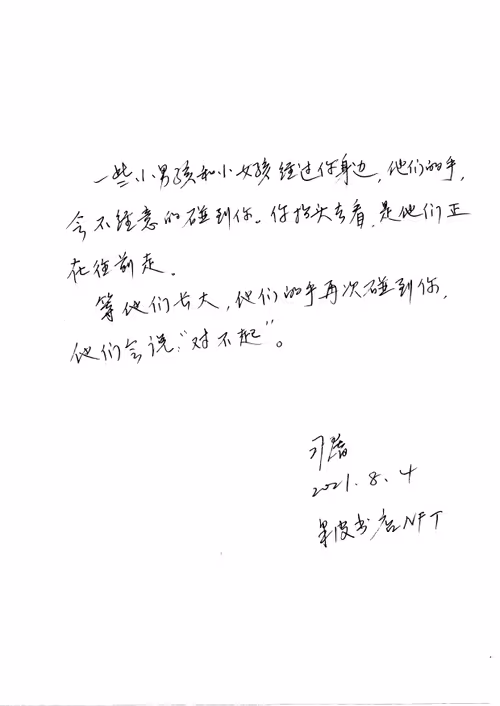 一些小男孩和小女孩经过你身边,他们的手,
会不经意的碰到你。你抬头去看,是他们正
在往前走。
等他们长大,他们的手再次碰到你,
他们会说:“对不起”。
2021.8.4
果皮书店NFT